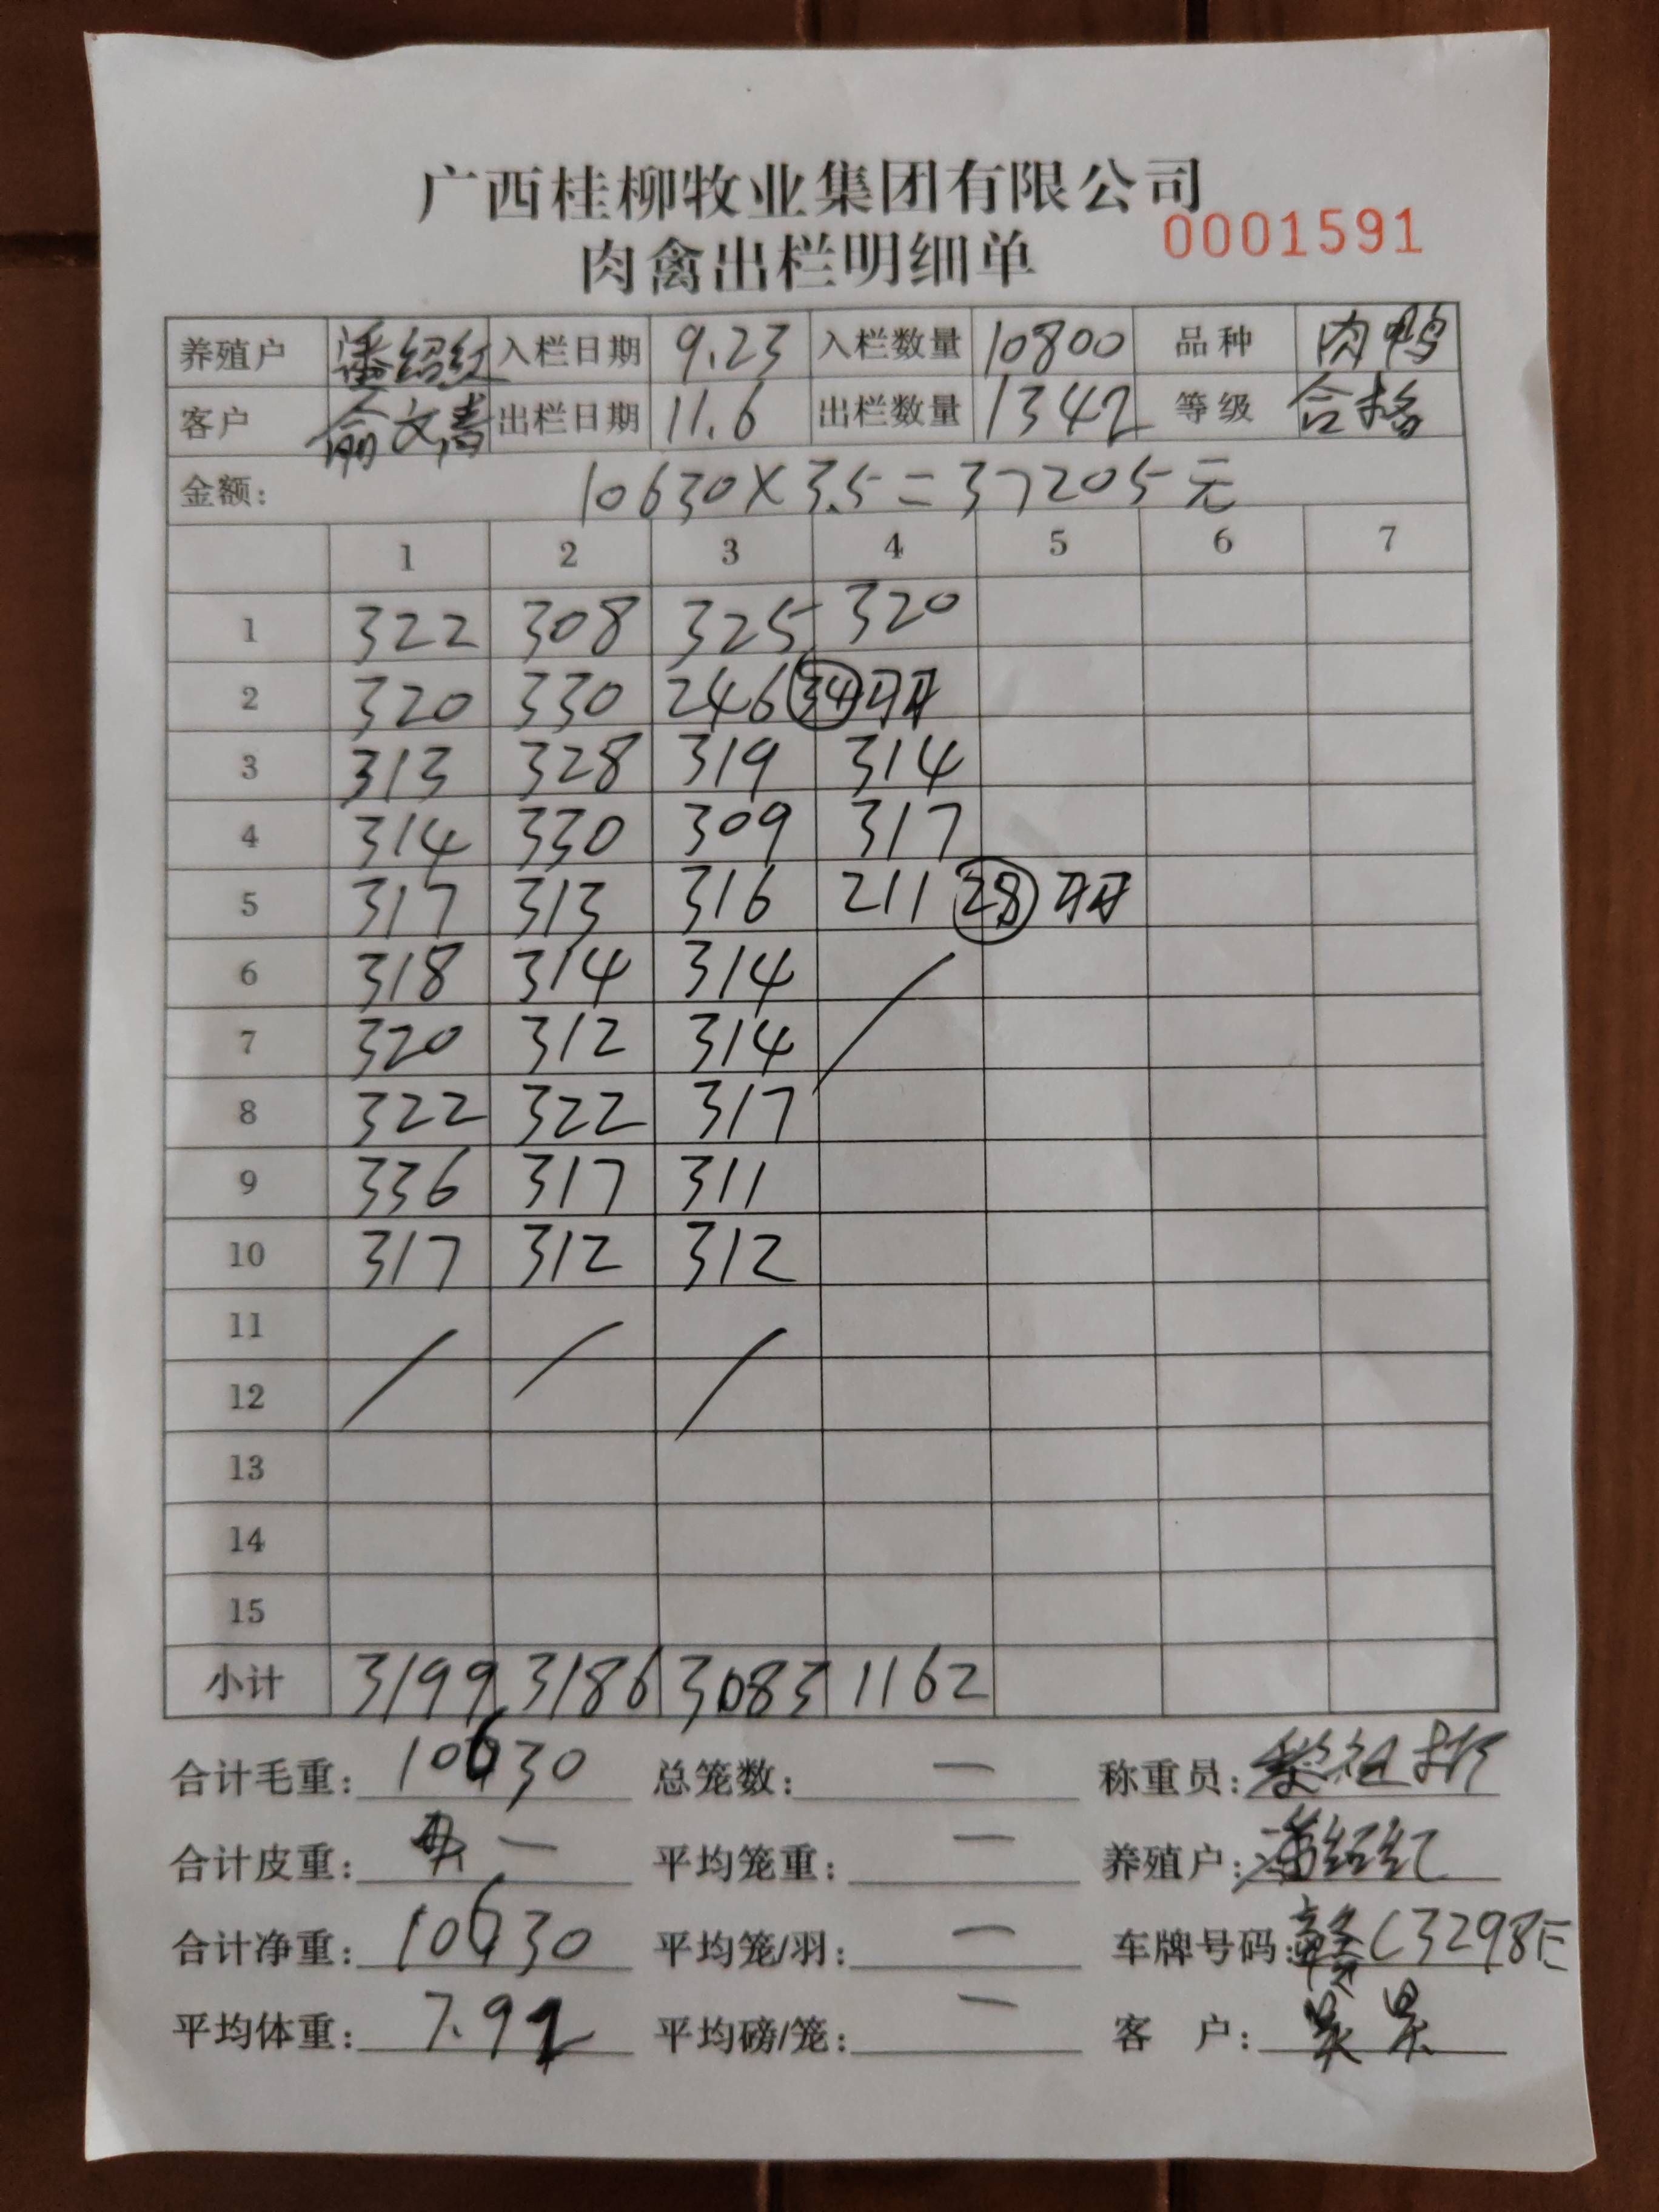 广西桂柳牧业集团有限公司
肉禽出栏明细单 0001591
养殖户 潘绍红 入栏日期 9.23 入栏数量 10800 品种 肉鸭
客户 俞文青 出栏日期 11.6 出栏数量 1342 等级 合格
金额: 10630×3.5=37205元
1 2 3 4 5 6 7
1 322 308 325 320
2 320 330 246 34羽
3 313 328 319 314
4 314 330 309 317
5 317 313 316 211 28羽
6 318 314 314
7 320 312 314
8 322 322 317
9 336 317 311
10 317 312 312
11
12
13
14
15
小计 3199 3186 3083 1162
合计毛重: 10630 总笼数: 一 称重员:
合计皮重: 一 平均笼重: 一 养殖户: 潘绍红
合计净重: 10630 平均笼/羽: 一 车牌号码: 赣C3298E
平均体重: 7.92 平均磅/笼: 一 客户: